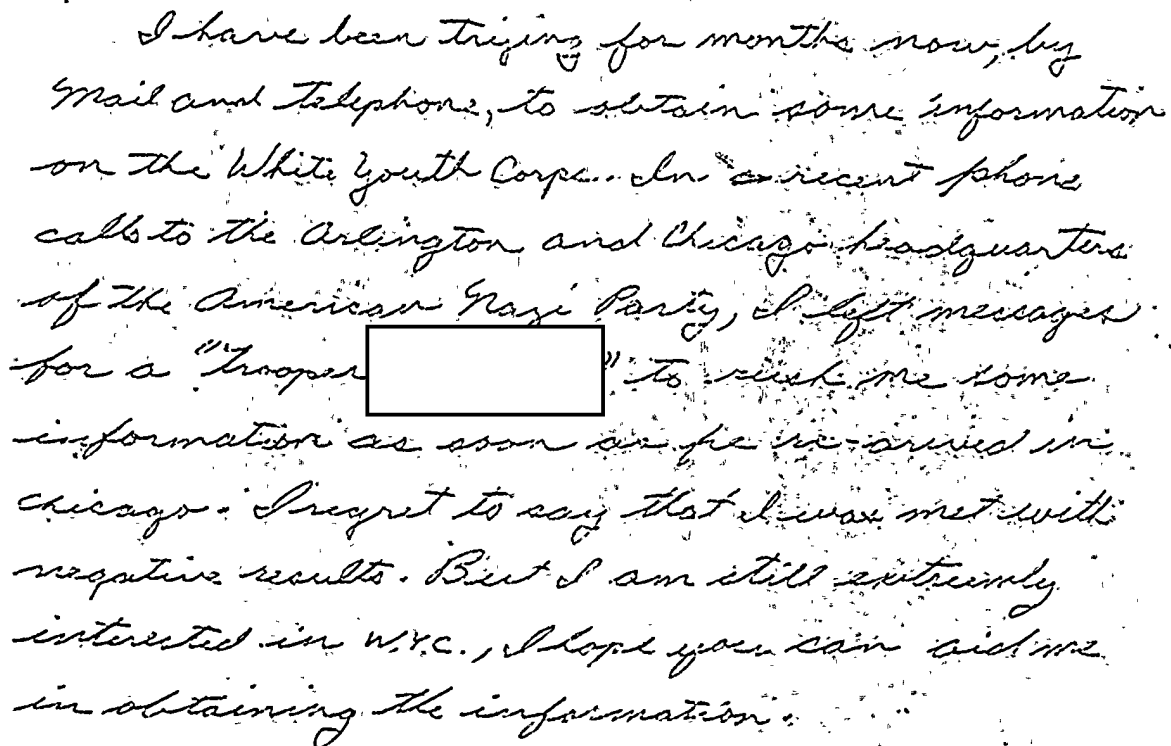 I have been trying for months now, by
Mail and telephone, to obtain some information
on the White Youth Corps. In a recent phone
calls to the Arlington and Chicago headquarters
of the American Nazi Party, I left messages
for a "Trooper " to rush me some
information as soon as he re-arived in
chicago. I regret to say that I was met with
negative results. But I am still extreemly
interested in W.Y.C., I hope you can aid me
in obtaining the information.